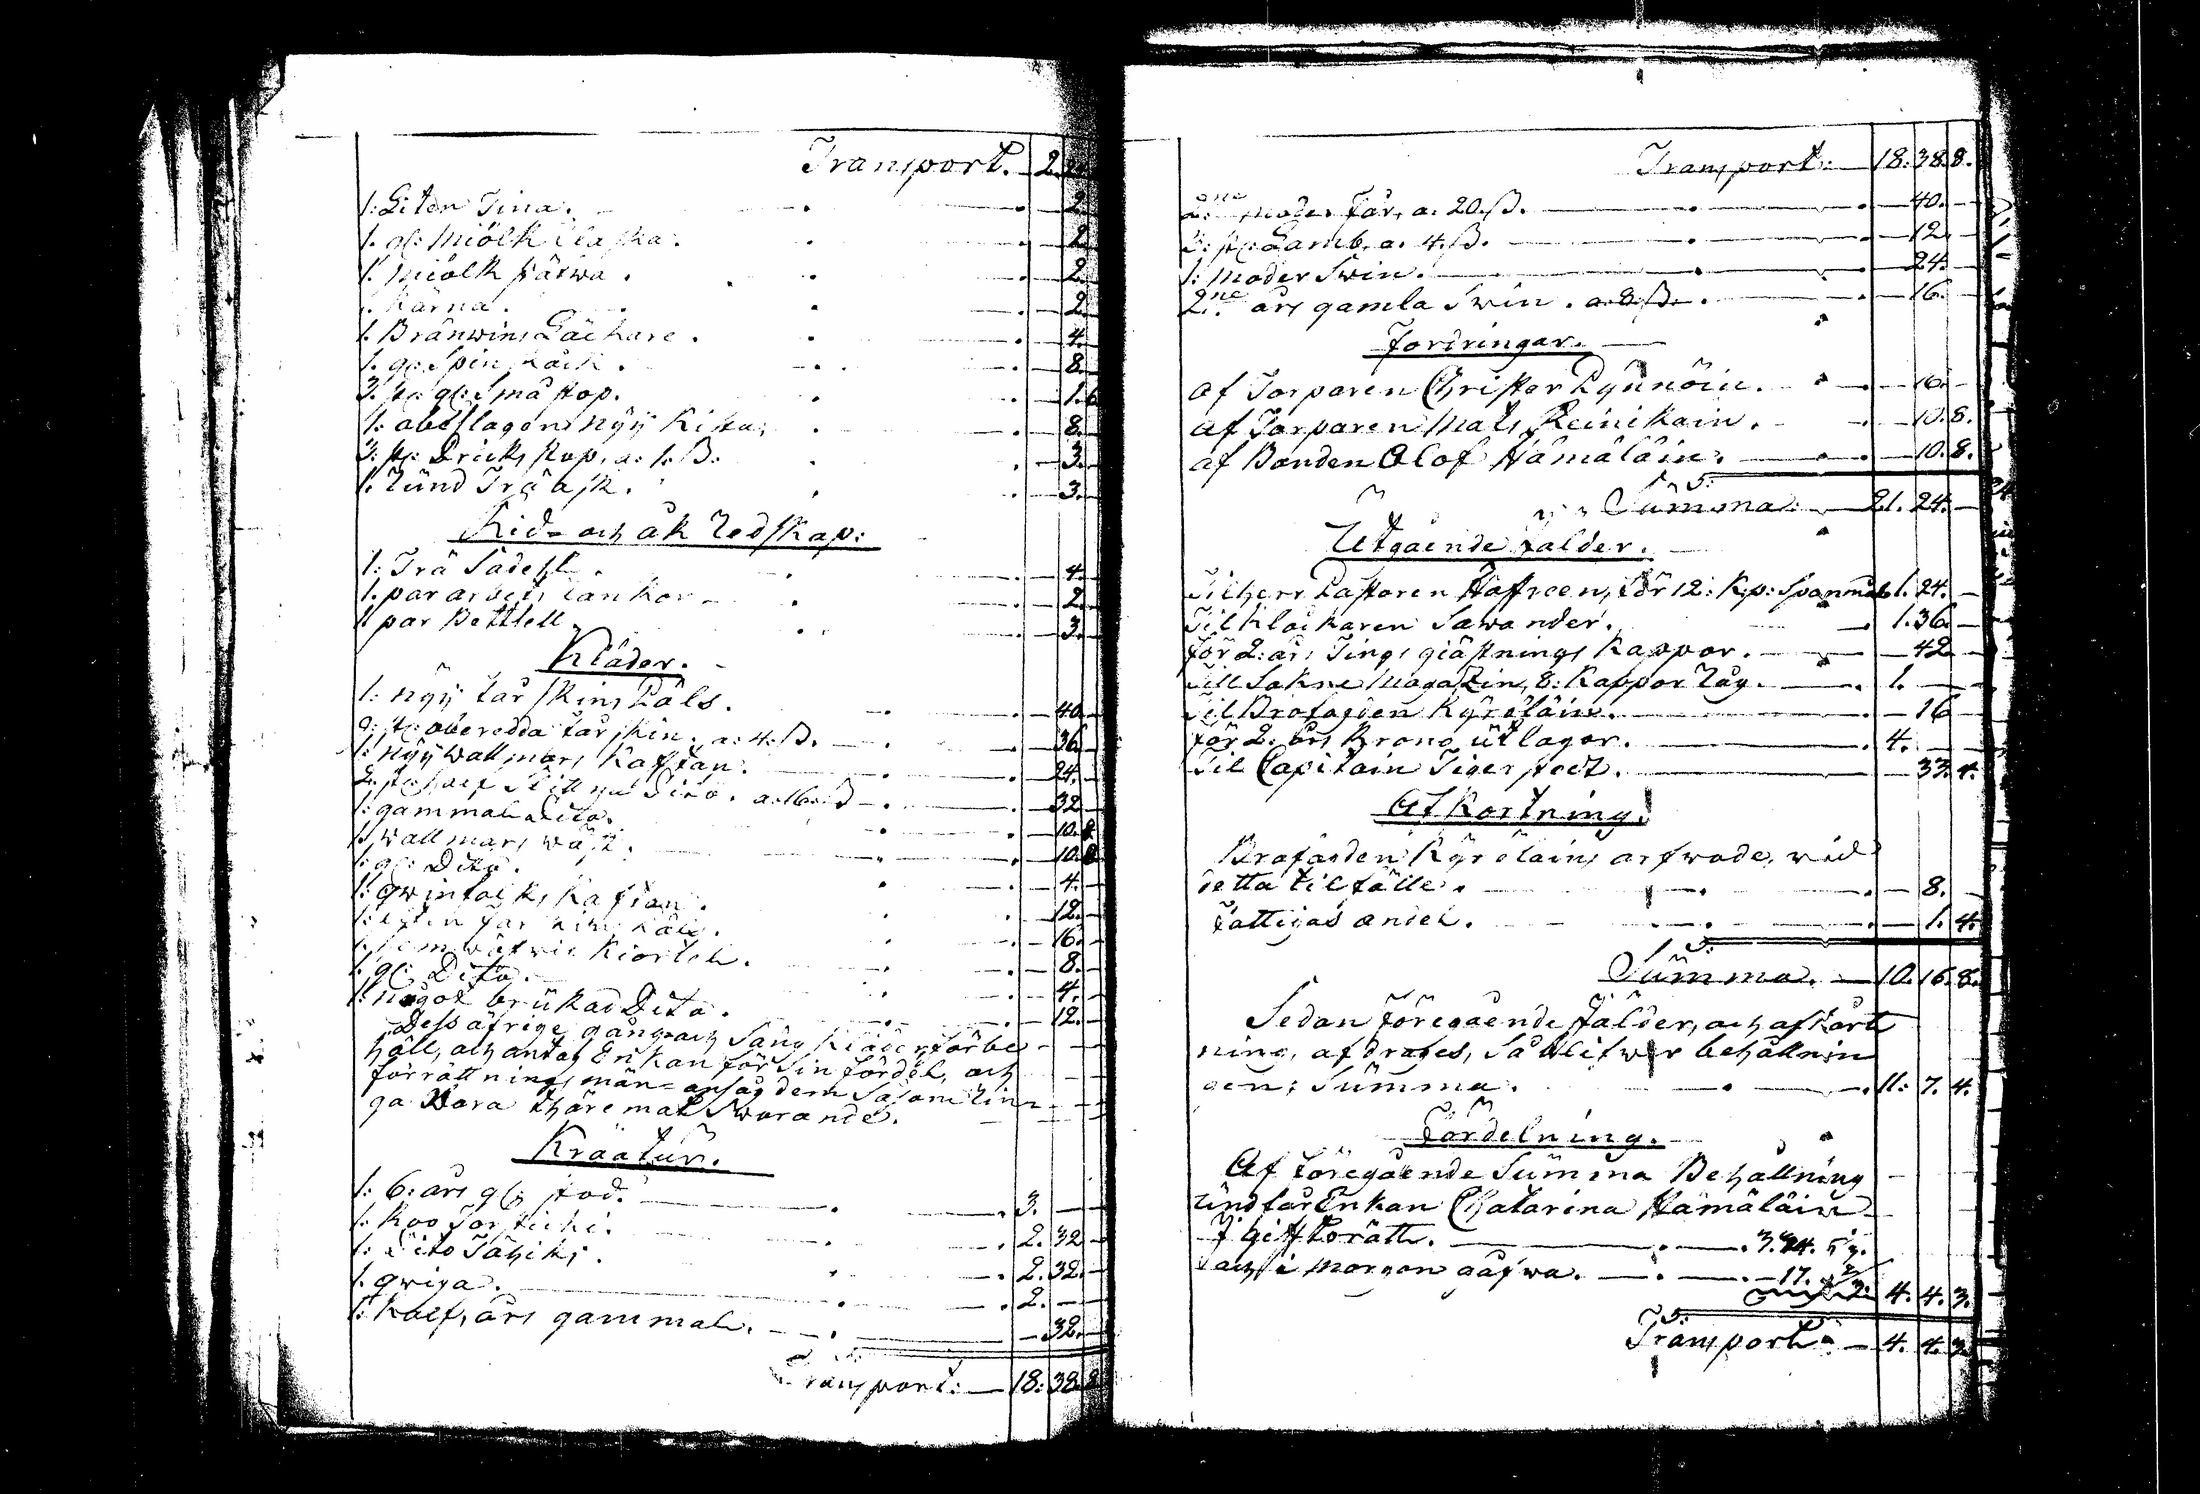 Transport. 2.
1: Liten Tina. 2.
1. gl: Miölk flaska. 2.
1. Miölk 2.
1. Kärna. 2.
1. Bränwins Läckare. 4.
1. gl: Spin 8.
3. st: gl: Små stop. 1. 6
1: obeslagen nÿÿ Kista 8.
3: st: Dricks stop, a: 1. ß. 3.
1. Rund Trä ask. 3.
Rid- och åk Redskap:
1: Trä Sadehl. 4.
1. par arbets lankor 2.
1 par Bettsell 3.
Kläder.
1: nÿÿ fårskins Päls. 40
9: st: oberedda fårskin. a: 4. ß. 36
1: nÿÿ wallmars Kaftan. 24.
2. st: half Slittna Dito. a: 16. ß 32
1: gammal Dito. 10. 8
1. wallmars wäst. 10. 8
1: gl: Dito. 4.
1: qwinfolks Kaftan. 12.
1: Päls. 16.
1. Kiortel. 8.
1: gl: Dito. 4.
1: något brükad Dito. 12.
Dess öfrige gång och Säng Kläder förbe
höll, och antog Enkan för Sin fördel, och
förrättnings män ansåg dem Såsom rin
ga wara thäremot Swarande.
Kräatur.
1: 6: års gl: stod. 3.
1. Koo Torsticki. 2. 32
1: Dito Tähiki. 2. 32.
1. qwiga. 2.
1: Kalf, års gammal. 32.
Transport: 18: 38. 8
Transport: 18: 38. 8.
2:ne moder får, a: 20. ß. 40.
3: st: Lamb, a. 4. ß. 12
1: moder Swin. 24.
2:ne års gamla Swin. a 8 ß. 16.
Fordringar.
af Torparen Christer Pÿnnöin. 16.
af Torparen Mats Reinikain. 10. 8.
af Bonden Olof Hämäläin. 10. 8.
Summa: 21. 24.
Utgående fälder.
Til herr Pastoren Hoffreen, för 12: K:p: Spanmål 1. 24.
Til Klockaren Sawander. 1. 36
för 2: års Tings giästnings Kappor. 42
Till Sokne Magazin, 8: Kappor Råg. 1.
Til Brofogden Kÿröläin. 16
för 2: års Krono ütlagor. 4.
Til Capitain Tigerstedt. 33. 4.
Afkortning.
Brofogden Kÿröläins arfwode, wid
detta tilfälle. 8.
Fattigas andel. 1. 4.
Summa. 10. 16. 8.
Sedan föregående fälder, och afkort
ning, afdrages, Så blifwer behållnin
gen: Summa. 11: 7. 4.
Fördelning.
Af föregående Summa Behållning
undfår Enkan Chatarina Hämäläin
I Gifttorätt. 3.
och i Morgon gåfwa. 17. 4. 4. 3.
Transport 4. 4. 3